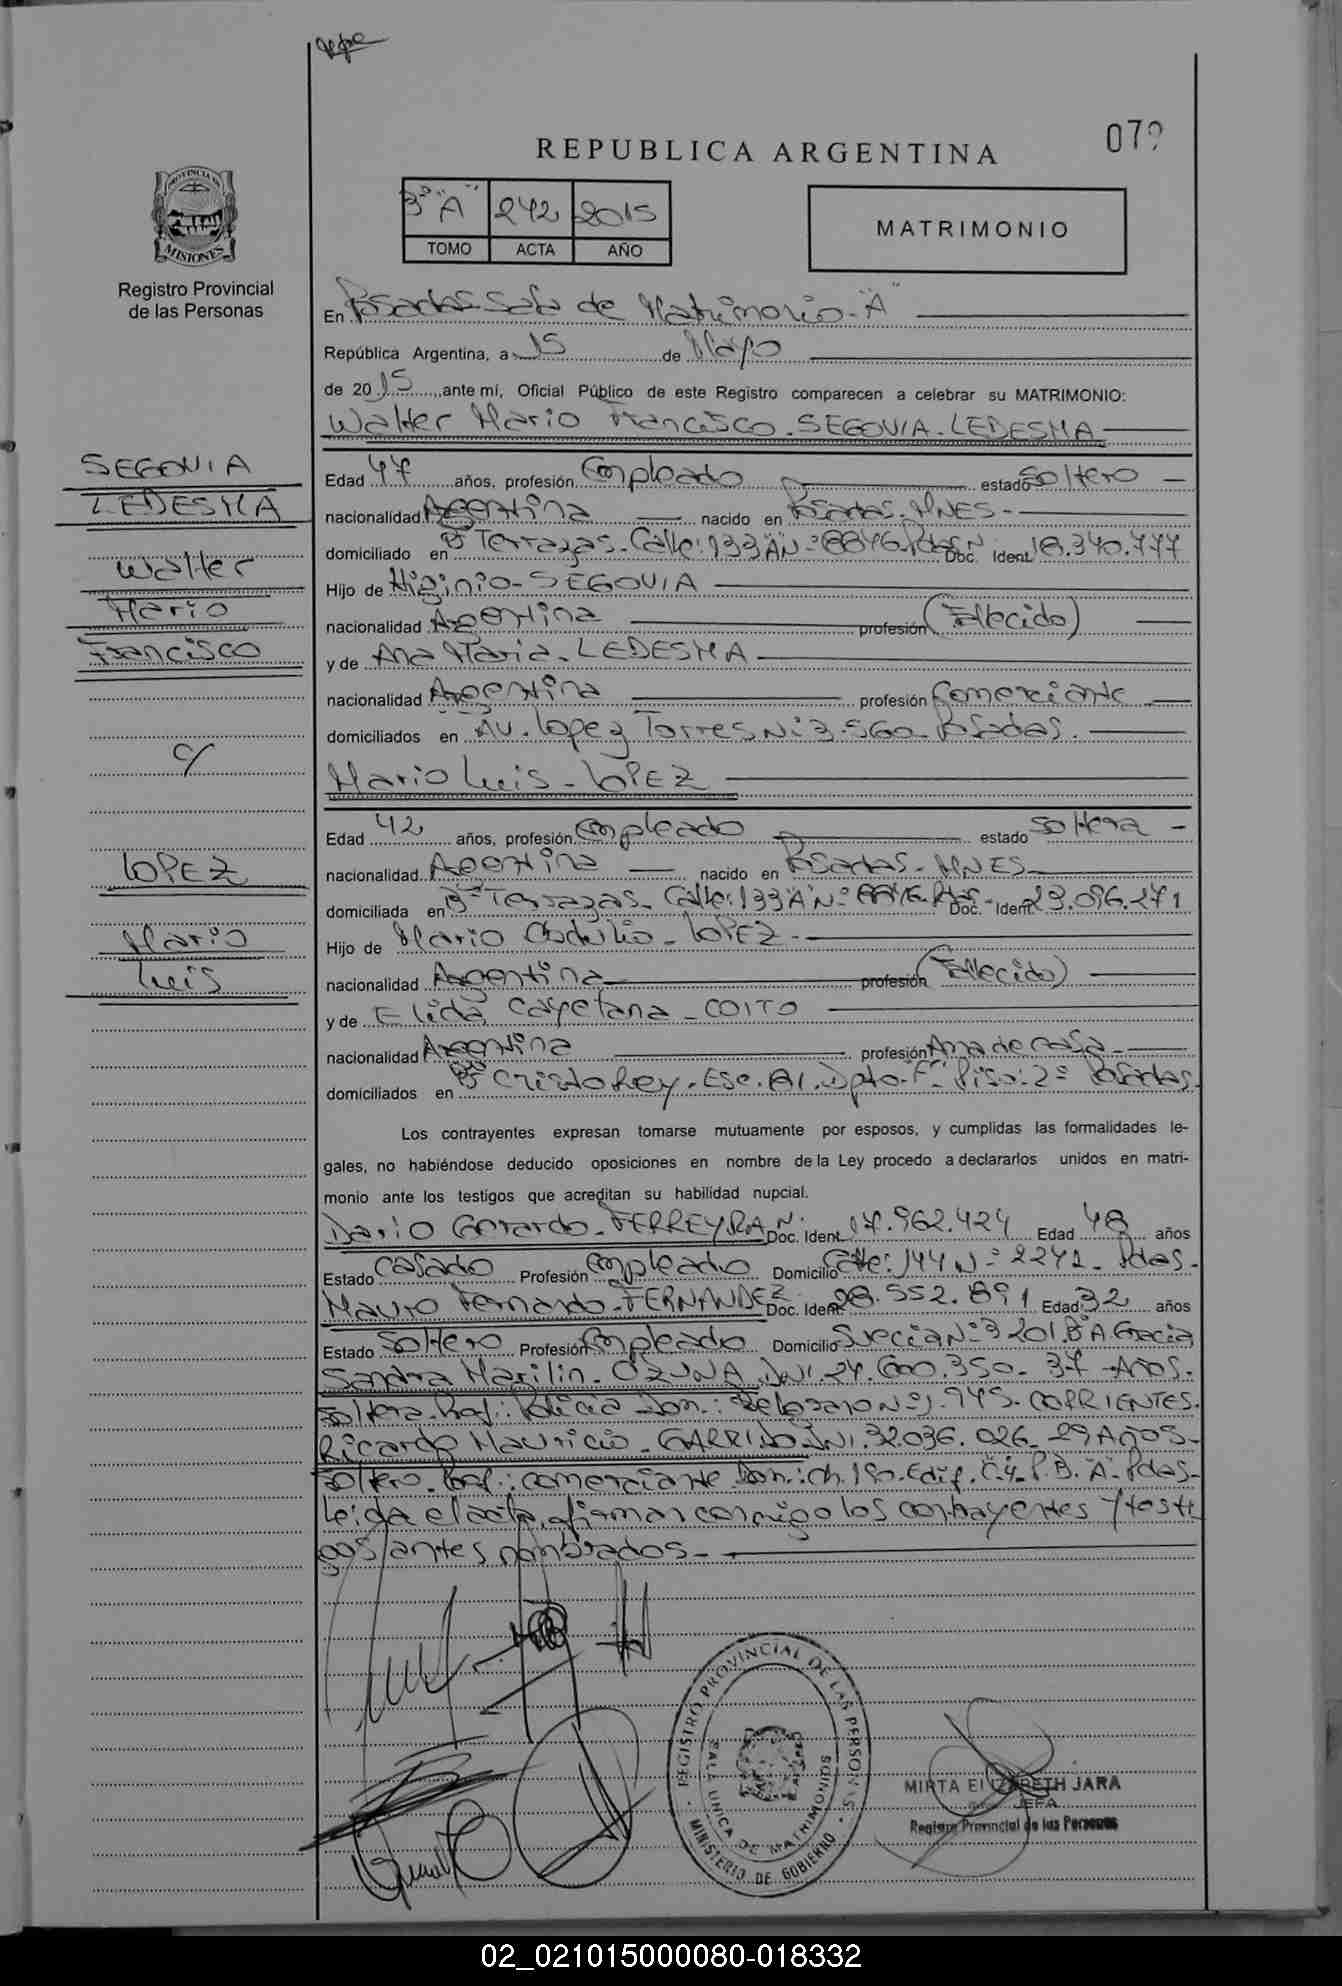 079
REPUBLICA ARGENTINA
3º "A" 242 2015
TOMO ACTA AÑO
MATRIMONIO
PROVINCIA DE MISIONES
Registro Provincial
de las Personas
En Posadas Sala de Matrimonio "A"
República Argentina, a 15 de Mayo
de 2015 ante mí, Oficial Público de este Registro comparecen a celebrar su MATRIMONIO:
Walter Mario Francisco. SEGOVIA. LEDESMA
SEGOVIA
LEDESMA
Walter
Mario
Francisco
c/
LOPEZ
Mario
Luis
Edad 47 años, profesión Empleado estado soltero
nacionalidad Argentina nacido en Posadas. MNES-
domiciliado en Bº Terrazas. Calle: 133"A"Nº 8846. Pdas Nº Doc. Ident. 18.340.777
Hijo de Higinio- SEGOVIA
nacionalidad Argentina profesión (Fallecido)
y de Ana Maria. LEDESMA
nacionalidad Argentina profesión Comerciante
domiciliados en Av. Lopez Torres Nº 3.560. Posadas.
Mario Luis - LOPEZ
Edad 42 años, profesión Empleado estado soltera
nacionalidad Argentina nacido en Posadas. MNES
domiciliada en Bº Terrazas. Calle: 133"A"Nº 8846. Pdas. Doc. Ident. 23.096.271
Hijo de Mario Obdulio - LOPEZ.
nacionalidad Argentina profesión (Fallecido)
y de Elida Cayetana - COITO
nacionalidad Argentina profesión Ama de casa
domiciliados en Bº Cristo Rey. Esc. 81. Dpto. F. Piso: 2º Posadas.
Los contrayentes expresan tomarse mutuamente por esposos, y cumplidas las formalidades le-
gales, no habiéndose deducido oposiciones en nombre de la Ley procedo a declararlos unidos en matri-
monio ante los testigos que acreditan su habilidad nupcial.
Dario Gerardo. FERREYRA Nº Doc. Ident. 17.962.424 Edad 48 años
Estado casado Profesión Empleado Domicilio Calle: 144 Nº 2272. Pdas.
Mauro Fernando. FERNANDEZ Doc. Ident. 28.552.891 Edad 32 años
Estado soltero Profesión Empleado Domicilio Suecia Nº 3201. Bº A. Gracia
Sandra Marilin. OZUNA. DNI. 24.600.350. 37 Años.
soltera. Prof.: Policia Dom.: Belgrano Nº 1.945. CORRIENTES.
Ricardo Mauricio - GARRIDO DNI. 32.036.026. 29 Años-
soltero. Prof.: comerciante. Dom.: Ch. 150. Edif. C.4. P.B. "A". Pdas-
Leida el acta, firman conmigo los contrayentes y testi
gos antes nombrados.
REGISTRO PROVINCIAL DE LAS PERSONAS
SALA UNICA DE MATRIMONIOS
MINISTERIO DE GOBIERNO
MIRTA ELIZABETH JARA
JEFA
Registro Provincial de las Personas
02_021015000080-018332